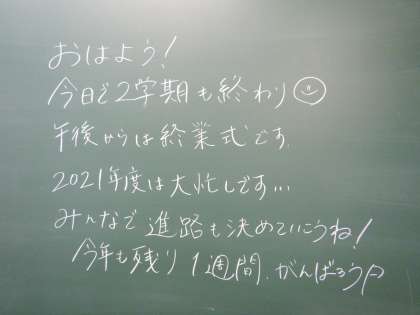 おはよう!
今日で2学期も終わり☺
午後からは終業式です.
2021年度は大忙しです...
みんなで進路も決めていこうね!
今年も残り1週間.がんばろう♪